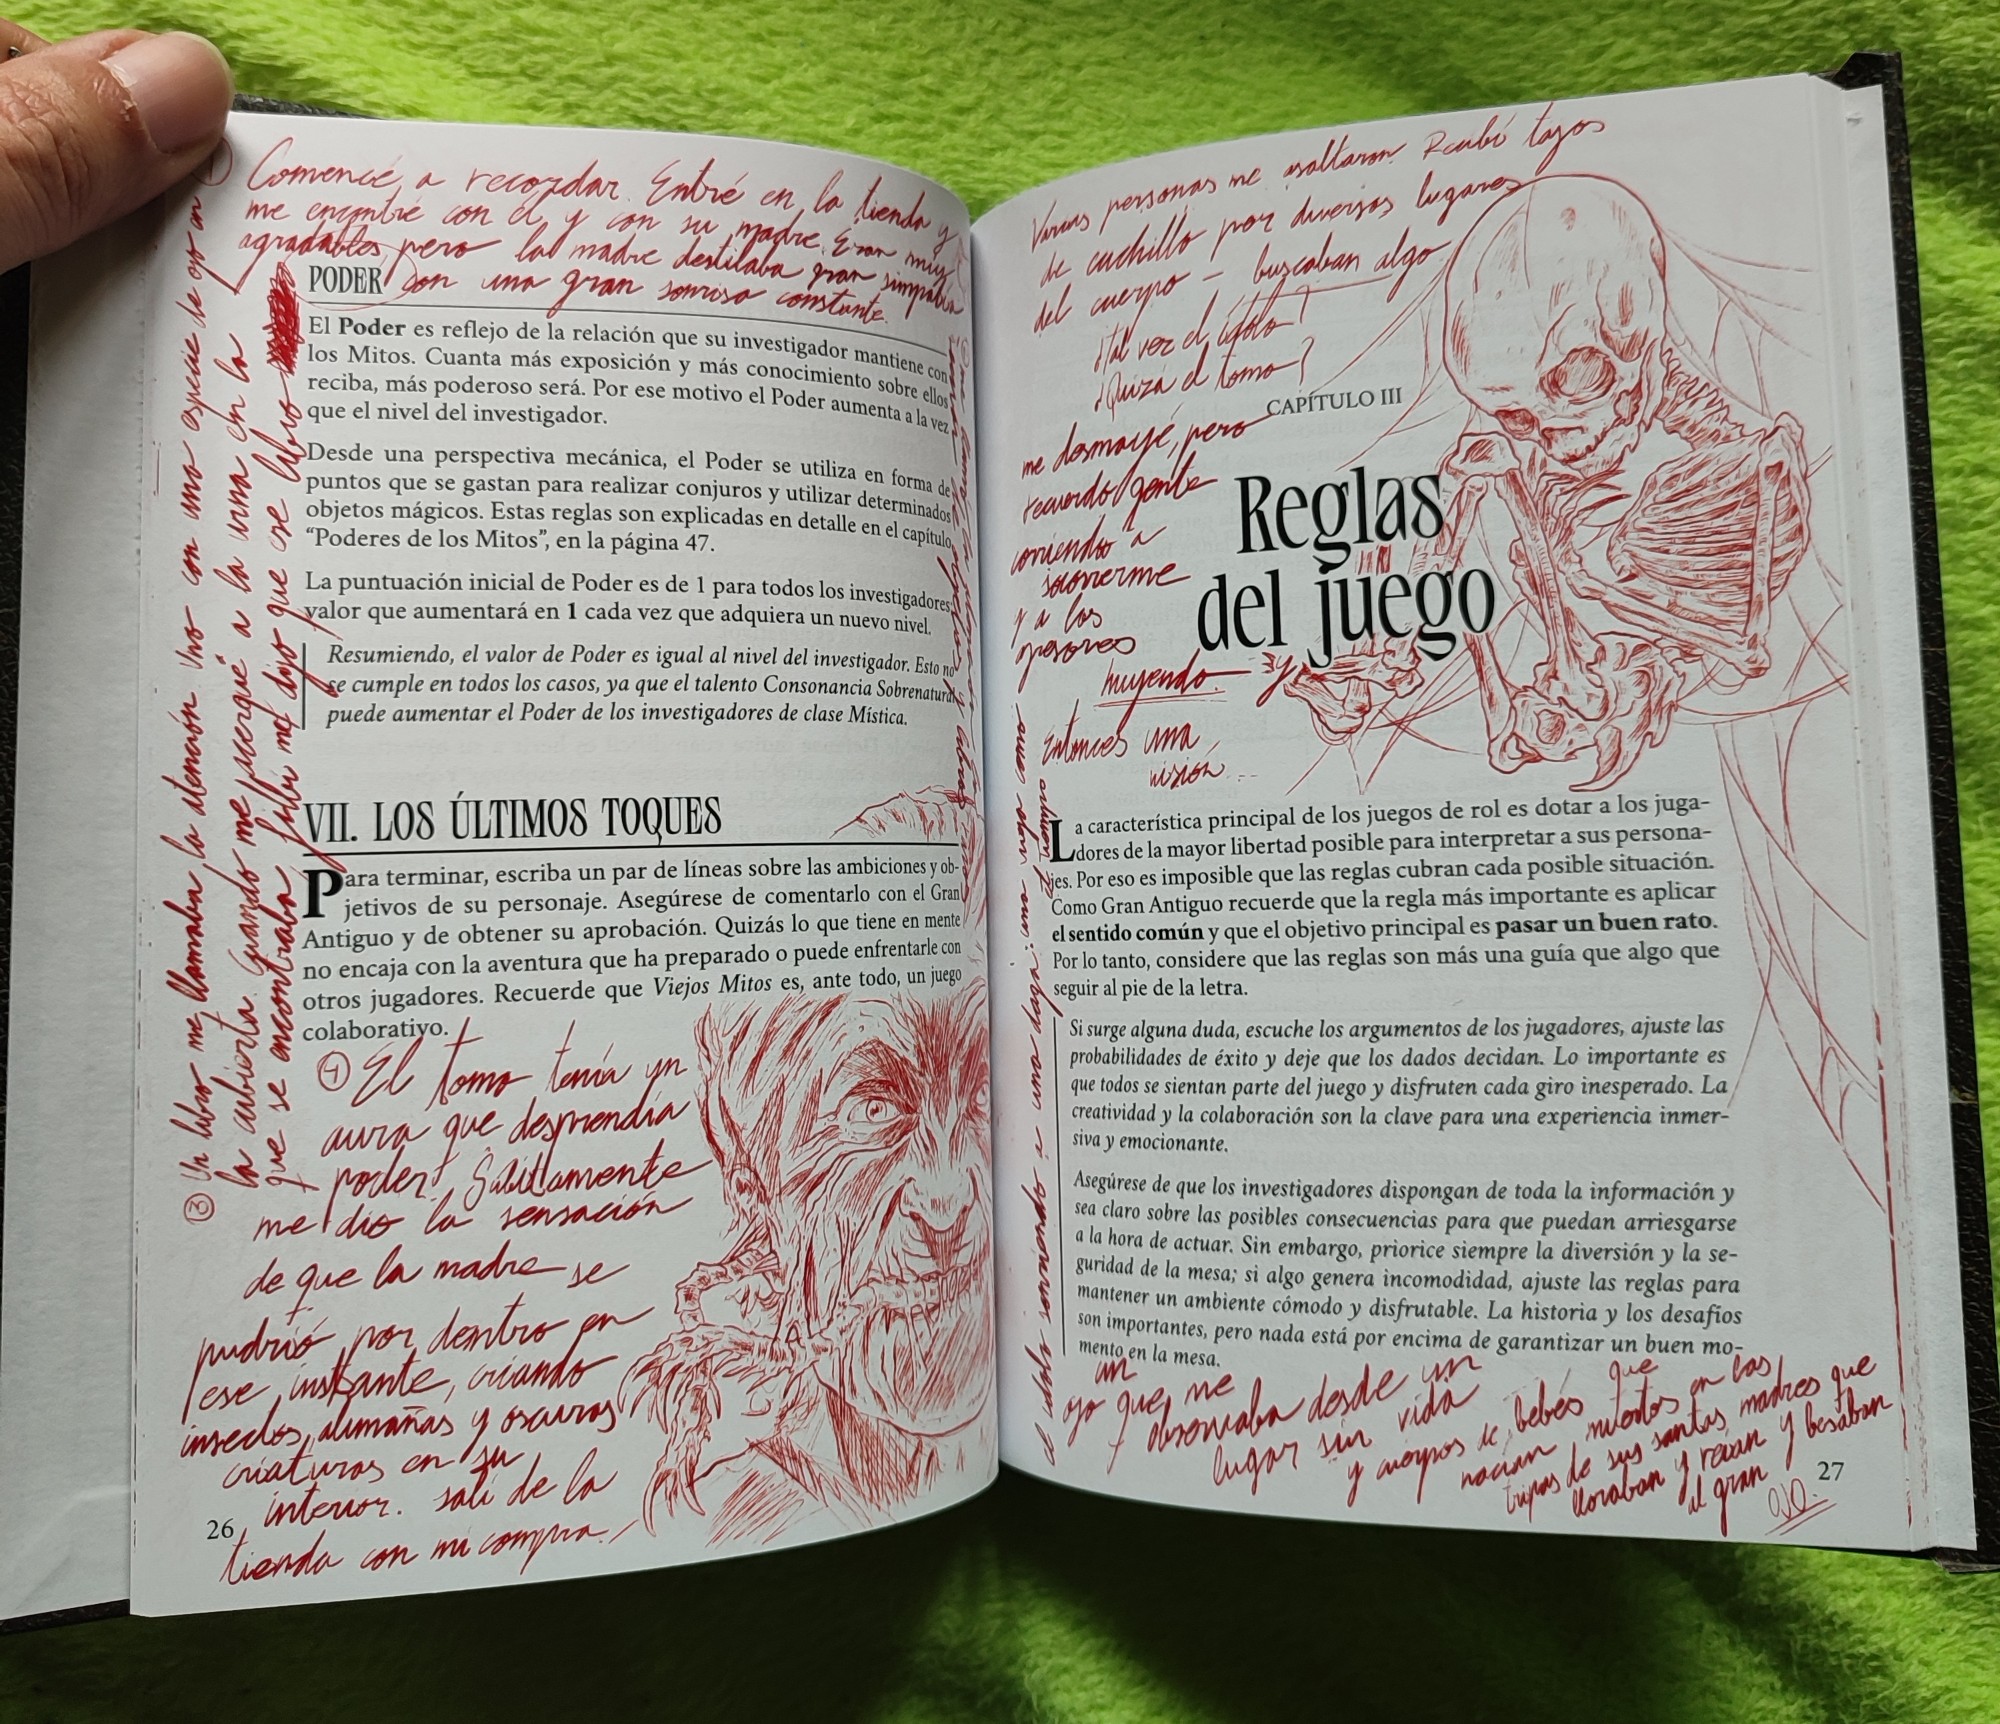 Comencé a recordar. Entré en la tienda y
me encontré con él y con su madre. Eran muy
agradables, pero la madre destilaba gran simpatía
con una gran sonrisa constante.
PODER
El Poder es reflejo de la relación que su investigador mantiene con
los Mitos. Cuanta más exposición y más conocimiento sobre ellos
reciba, más poderoso será. Por ese motivo el Poder aumenta a la vez
que el nivel del investigador.
Desde una perspectiva mecánica, el Poder se utiliza en forma de
puntos que se gastan para realizar conjuros y utilizar determinados
objetos mágicos. Estas reglas son explicadas en detalle en el capítulo
“Poderes de los Mitos”, en la página 47.
La puntuación inicial de Poder es de 1 para todos los investigadores,
valor que aumentará en 1 cada vez que adquiera un nuevo nivel.
Resumiendo, el valor de Poder es igual al nivel del investigador. Esto no
se cumple en todos los casos, ya que el talento Consonancia Sobrenatural
puede aumentar el Poder de los investigadores de clase Mística.
VII. LOS ÚLTIMOS TOQUES
Para terminar, escriba un par de líneas sobre las ambiciones y ob-
jetivos de su personaje. Asegúrese de comentarlo con el Gran
Antiguo y de obtener su aprobación. Quizás lo que tiene en mente
no encaja con la aventura que ha preparado o puede enfrentarle con
otros jugadores. Recuerde que Viejos Mitos es, ante todo, un juego
colaborativo.
③ Un libro me llamaba la atención. Uno con una especie de ojo en
la cubierta. Cuando me acerqué a la una en la
que se encontraba fijé me dijo que ese libro
④ El tomo tenía un
aura que desprendía
poder. Súbitamente
me dio la sensación
de que la madre se
pudrió por dentro en
ese instante, criando
insectos, alimañas y oscuras
criaturas en su
interior. Salí de la
tienda con mi compra.
26
Varias personas me asaltaron. Recibí tajos
de cuchillo por diversos lugares
del cuerpo - buscaban algo
¿Tal vez el ídolo?
¿Quizá el tomo?
CAPÍTULO III
me desmayé, pero
recuerdo gente
corriendo a
socorrerme
y a los
agresores
huyendo. - Y
Entonces una
visión...
Reglas
del juego
La característica principal de los juegos de rol es dotar a los juga-
dores de la mayor libertad posible para interpretar a sus persona-
jes. Por eso es imposible que las reglas cubran cada posible situación.
Como Gran Antiguo recuerde que la regla más importante es aplicar
el sentido común y que el objetivo principal es pasar un buen rato.
Por lo tanto, considere que las reglas son más una guía que algo que
seguir al pie de la letra.
Si surge alguna duda, escuche los argumentos de los jugadores, ajuste las
probabilidades de éxito y deje que los dados decidan. Lo importante es
que todos se sientan parte del juego y disfruten cada giro inesperado. La
creatividad y la colaboración son la clave para una experiencia inmer-
siva y emocionante.
Asegúrese de que los investigadores dispongan de toda la información y
sea claro sobre las posibles consecuencias para que puedan arriesgarse
a la hora de actuar. Sin embargo, priorice siempre la diversión y la se-
guridad de la mesa; si algo genera incomodidad, ajuste las reglas para
mantener un ambiente cómodo y disfrutable. La historia y los desafíos
son importantes, pero nada está por encima de garantizar un buen mo-
mento en la mesa.
un
ojo que me
observaba desde un
lugar sin vida
y cuerpos de bebés que
nacían muertos en las
tripas de sus santas madres que
lloraban y reían y besaban
al gran
OJO.
27